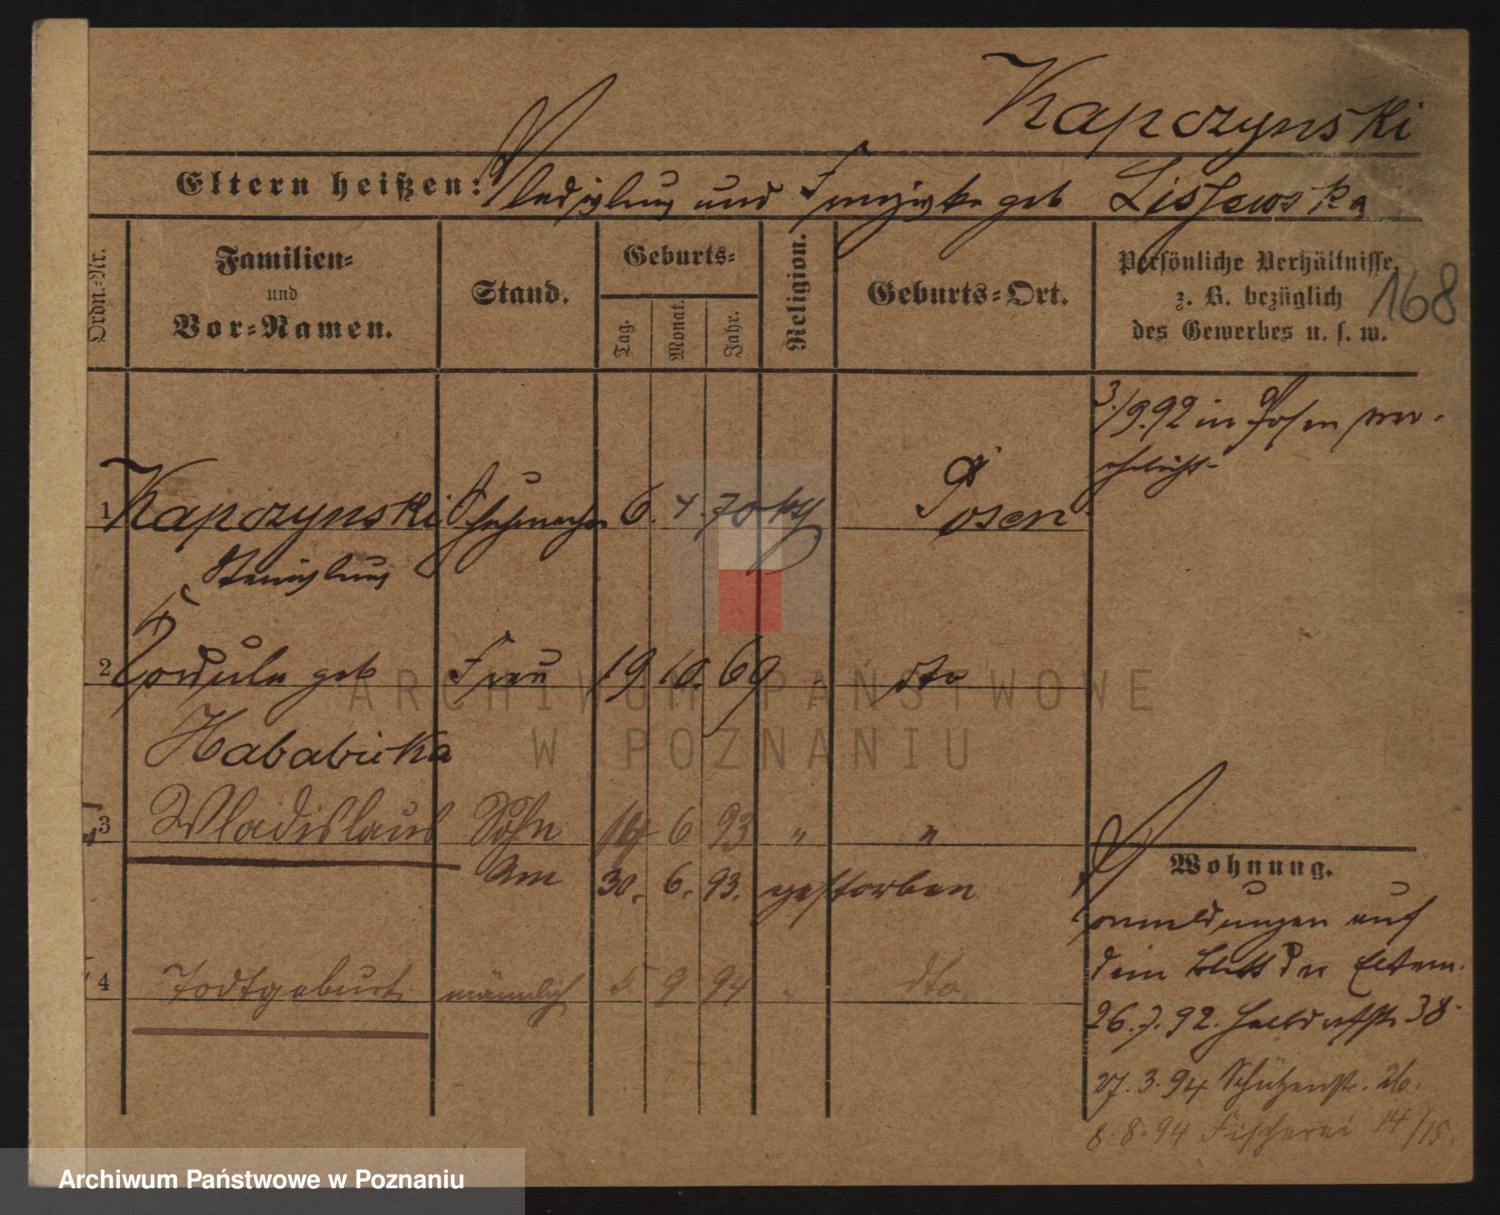 Kapczynski
Eltern heißen: Wladislaus und Franziska geb Lissewska
Ordn.-Nr.
Familien-
und
Vor-Namen.
Stand.
Geburts-
Tag.
Monat.
Jahr.
Religion.
Geburts-Ort.
Persönliche Verhältnisse,
z. B. bezüglich
des Gewerbes u. s. w.
168
3./9.92 in Posen ver-
ehelicht
1 Kapczynski Schuhmacher 6. 4. 70 kth Posen
Stanislaus
2 Kordula geb Frau 19 10. 69 " dto
Hababicka
3 Wladislaus Sohn 14 6 93 " "
Am 30. 6. 93. gestorben
4 Todtgeburt männlich 5 9 94 " dto
Wohnung.
Anmeldungen auf
dem Blatt der Eltern.
26.7.92. Halbdorfstr 38.
27.3.94 Schützenstr. 26.
8.8.94 Fischerei 14/15
ARCHIWUM PAŃSTWOWE
W POZNANIU
Archiwum Państwowe w Poznaniu